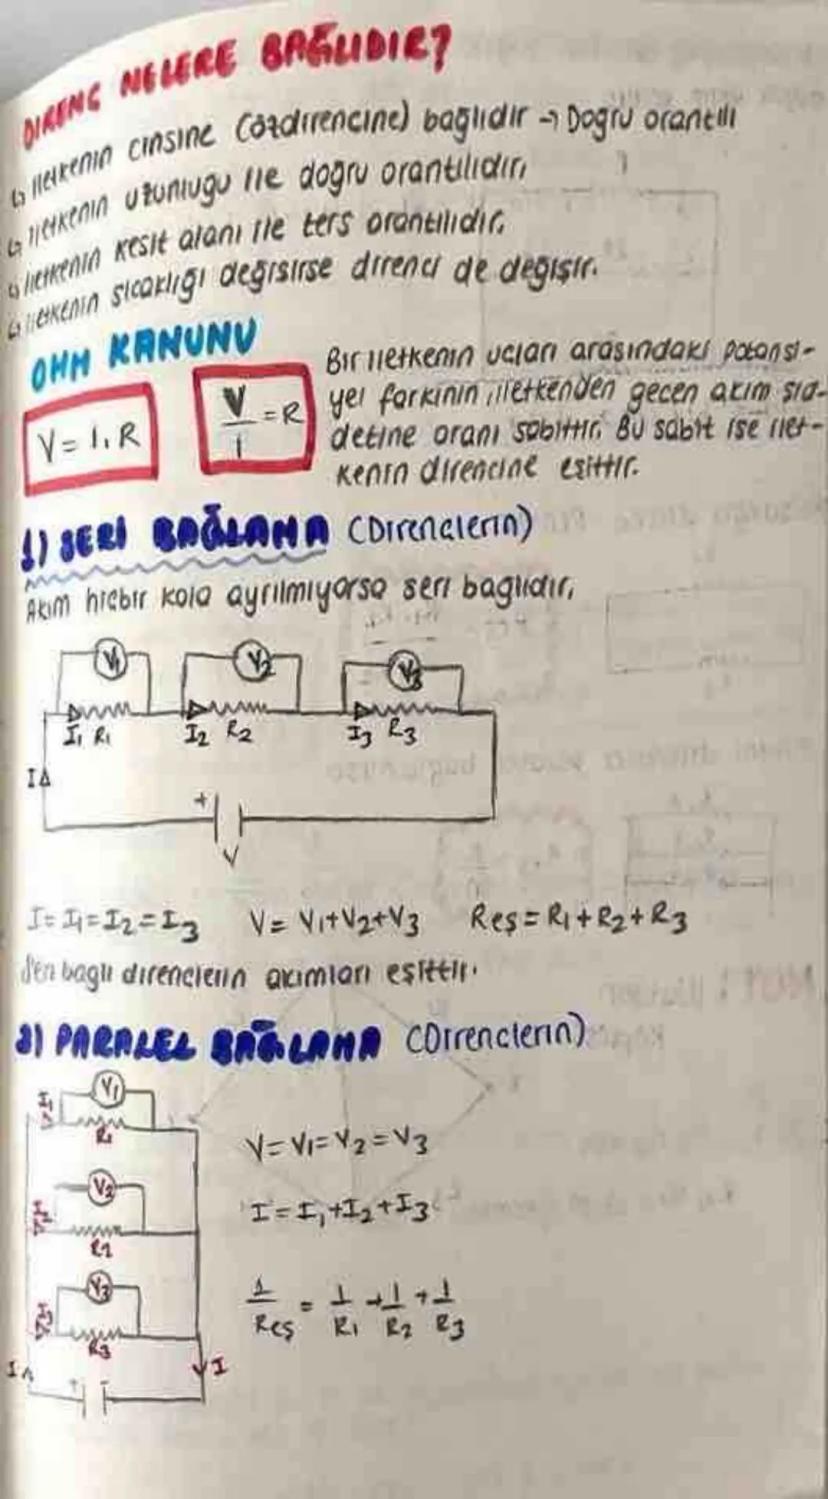 DİRENÇ NELERE BAĞLIDIR?
↳ İletkenin cinsine (özdirencine) bağlıdır → Doğru orantılı
↳ İletkenin uzunluğu ile doğru orantılıdır.
↳ İletkenin kesit alanı ile ters orantılıdır.
↳ İletkenin sıcaklığı değişirse direnci de değişir.
OHM KANUNU
V = I . R
V/I = R
Bir iletkenin uçları arasındaki potansi-
yel farkının, iletkenden geçen akım şid-
detine oranı sabittir. Bu sabit ise ilet-
kenin direncine eşittir.
1) SERİ BAĞLAMA (Dirençlerin)
Akım hiçbir kola ayrılmıyorsa seri bağlıdır.
V1 V2 V3
I1 R1 I2 R2 I3 R3
I
+
V
I = I1 = I2 = I3 V = V1 + V2 + V3 Reş = R1 + R2 + R3
Seri bağlı dirençlerin akımları eşittir.
2) PARALEL BAĞLAMA (Dirençlerin)
I1 V1
R1
V = V1 = V2 = V3
I2 V2
R2
I = I1 + I2 + I3
I3 V3
R3
1/Reş = 1/R1 + 1/R2 + 1/R3
I + I